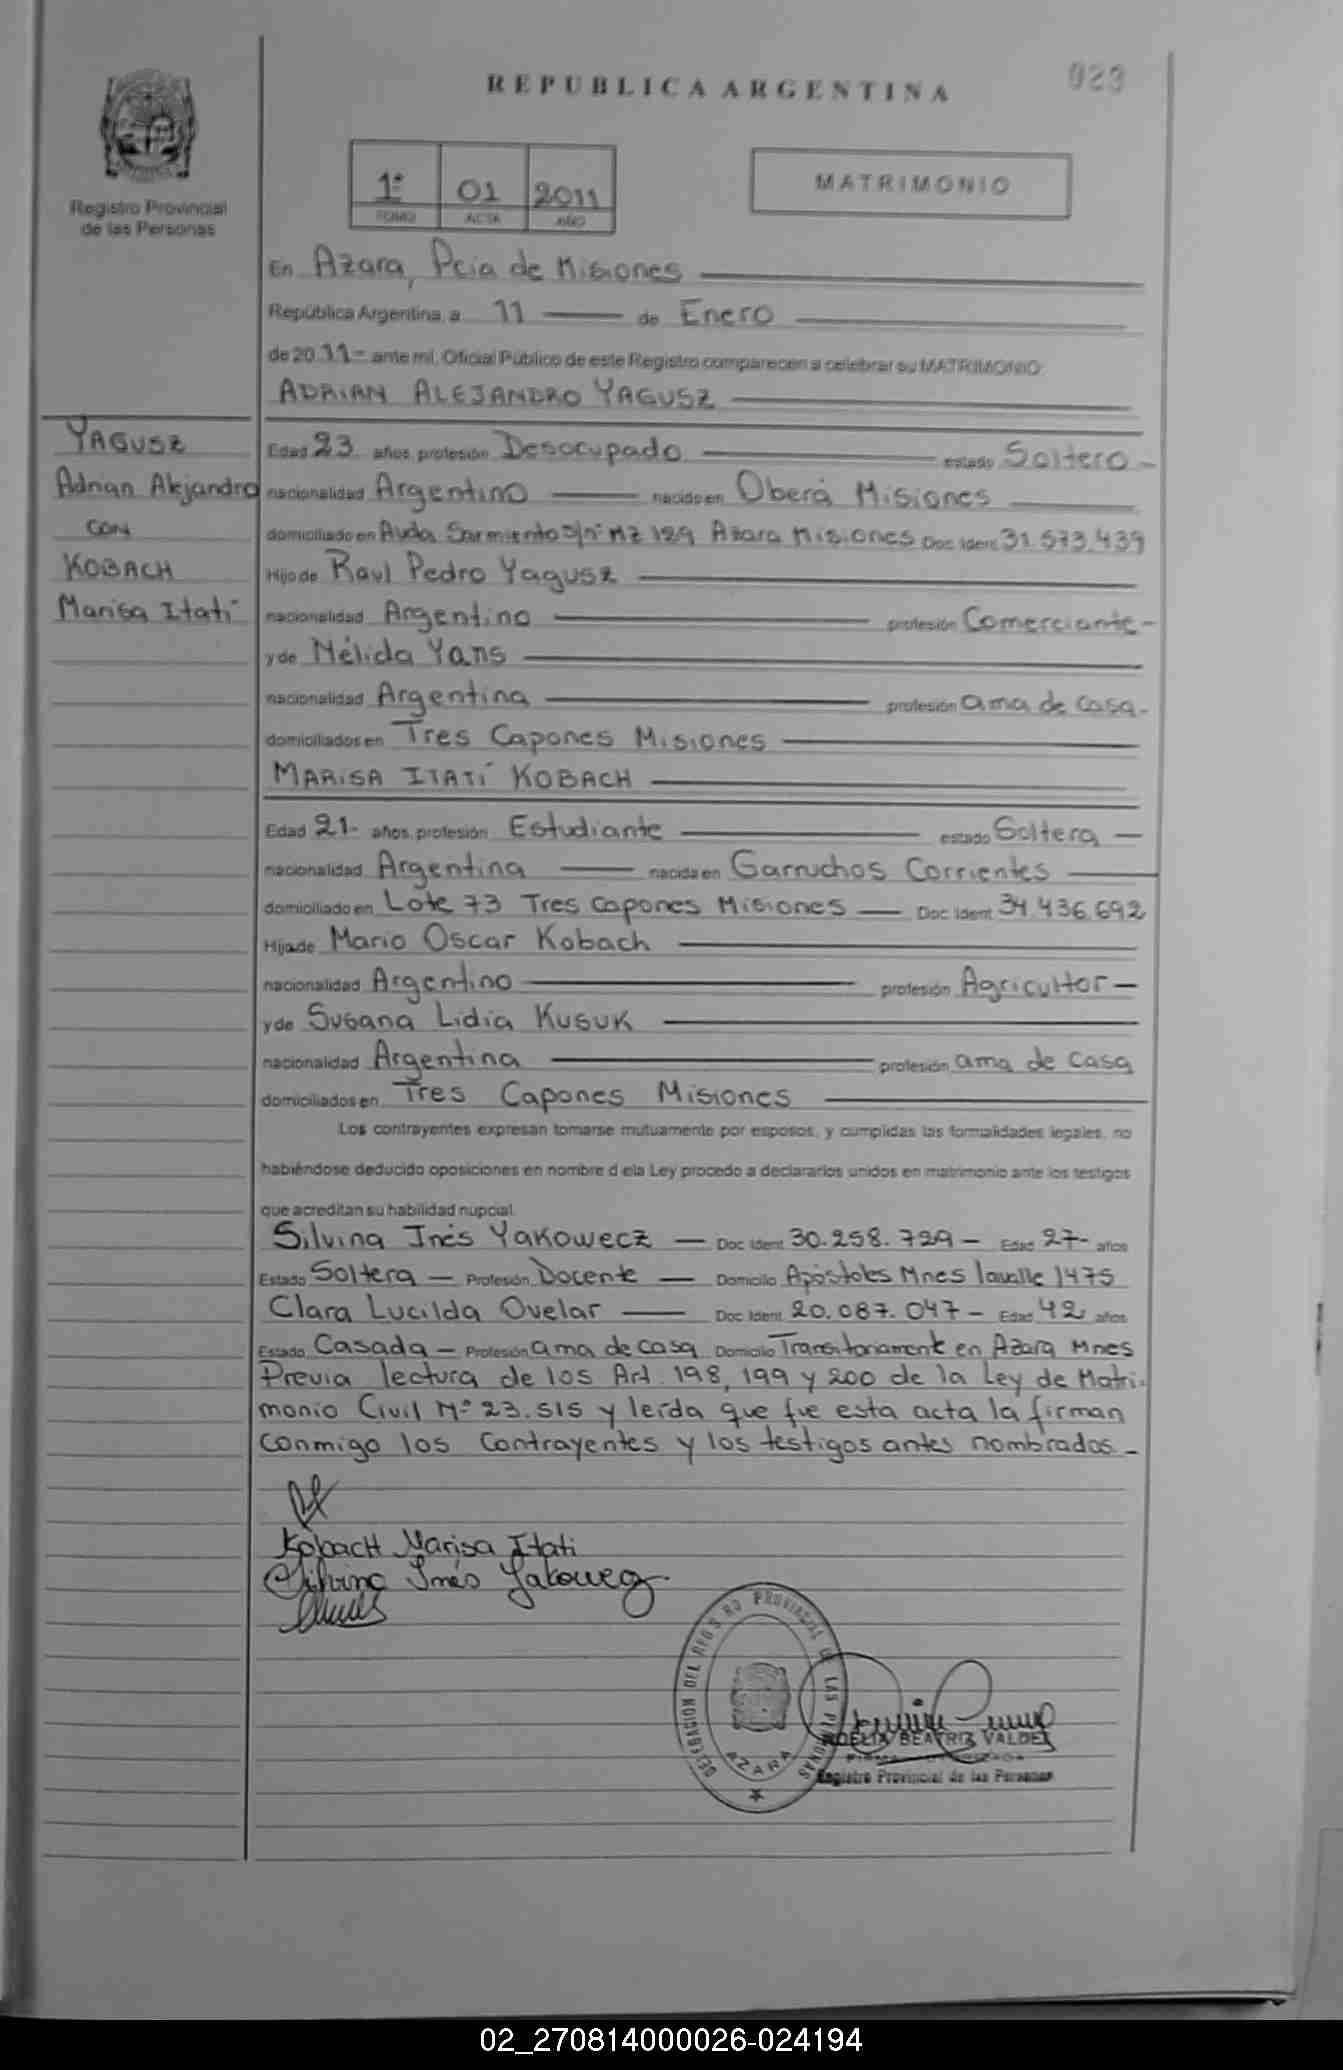 REPUBLICA ARGENTINA
023
Registro Provincial
de las Personas
1º 01 2011
TOMO ACTA AÑO
MATRIMONIO
En Azara, Pcia de Misiones
República Argentina, a 11 de Enero
de 20 11 - ante mi, Oficial Público de este Registro comparecen a celebrar su MATRIMONIO:
ADRIAN ALEJANDRO YAGUSZ
YAGUSZ
Adrian Alejandro
CON
KOBACH
Marisa Itatí
Edad 23 años, profesión Desocupado estado Soltero -
nacionalidad Argentino nacido en Oberá Misiones
domiciliado en Avda Sarmiento s/nº Mz 129 Azara Misiones Doc Ident 31.573.439
Hijo de Raul Pedro Yagusz
nacionalidad Argentino profesión Comerciante -
y de Nélida Yans
nacionalidad Argentina profesión ama de casa -
domiciliados en Tres Capones Misiones
MARISA ITATÍ KOBACH
Edad 21- años, profesión Estudiante estado Soltera -
nacionalidad Argentina nacida en Garruchos Corrientes
domiciliado en Lote 73 Tres Capones Misiones Doc Ident 34.436.692
Hija de Mario Oscar Kobach
nacionalidad Argentino profesión Agricultor -
y de Susana Lidia Kusuk
nacionalidad Argentina profesión ama de casa
domiciliados en Tres Capones Misiones
Los contrayentes expresan tomarse mutuamente por esposos, y cumplidas las formalidades legales, no
habiéndose deducido oposiciones en nombre d ela Ley procedo a declararlos unidos en matrimonio ante los testigos
que acreditan su habilidad nupcial.
Silvina Inés Yakowecz - Doc Ident 30.258.729 - Edad 27- años
Estado Soltera - Profesión Docente - Domicilio Apóstoles Mnes lavalle 1475
Clara Lucilda Ovelar - Doc Ident 20.087.047 - Edad 42 años
Estado Casada - Profesión ama de casa Domicilio Transitoriament en Azara Mnes
Previa lectura de los Art. 198, 199 y 200 de la Ley de Matri-
monio Civil Nº 23.515 y leída que fue esta acta la firman
conmigo los Contrayentes y los testigos antes nombrados. -
KobacH Marisa Itati
Silvina Inés Yakowecz
DELEGACION DEL REGISTRO PROVINCIAL DE LAS PERSONAS
AZARA
BEATRIZ VALDEZ
FIRMA AUTORIZADA
Registro Provincial de las Personas
02_270814000026-024194